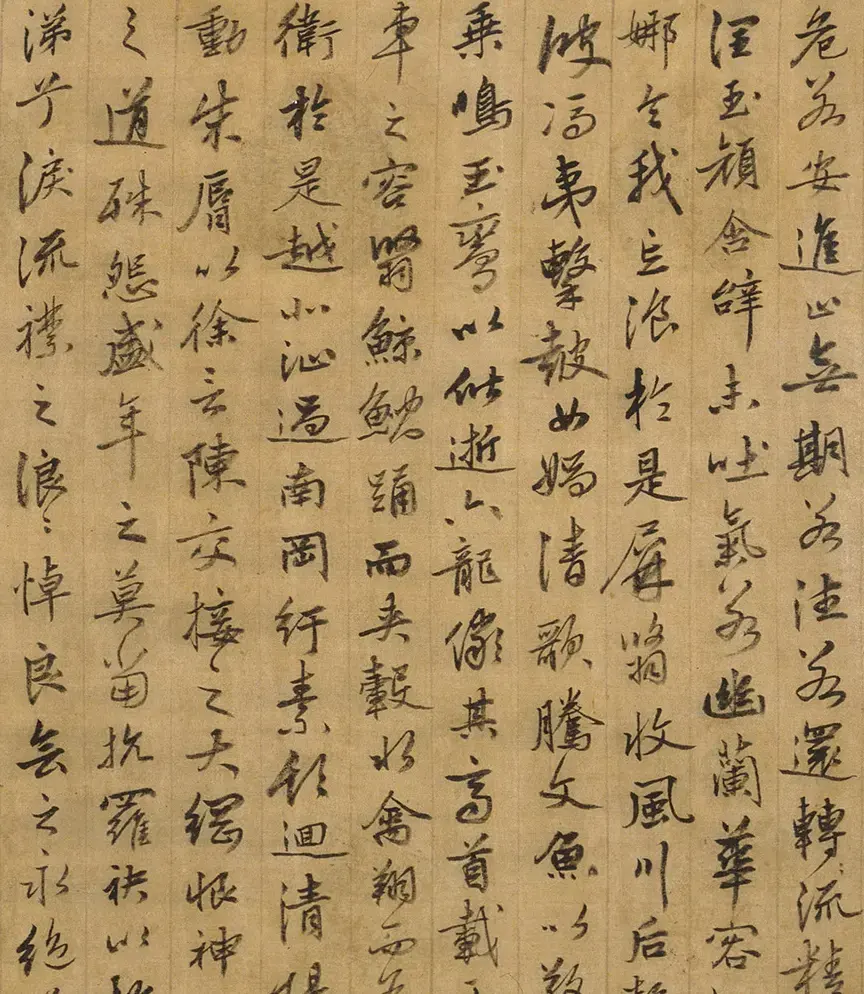 危若安進止無期若往若還轉流精
潤玉顏含辭未吐氣若幽蘭華容
娜令我忘湌於是屏翳收風川后
鼓馮夷擊鼓女媧清歌騰文魚以
乗鳴玉鸞以偕逝六龍儼其齊首載
車之容翳鯨鯢踊而夾轂水禽翔而
衛於是越北沚過南岡紆素領迴清
動朱脣以徐言陳交接之大綱恨神
之道殊怨盛年之莫當抗羅袂以
涕兮淚流襟之浪〻悼良會之永絶